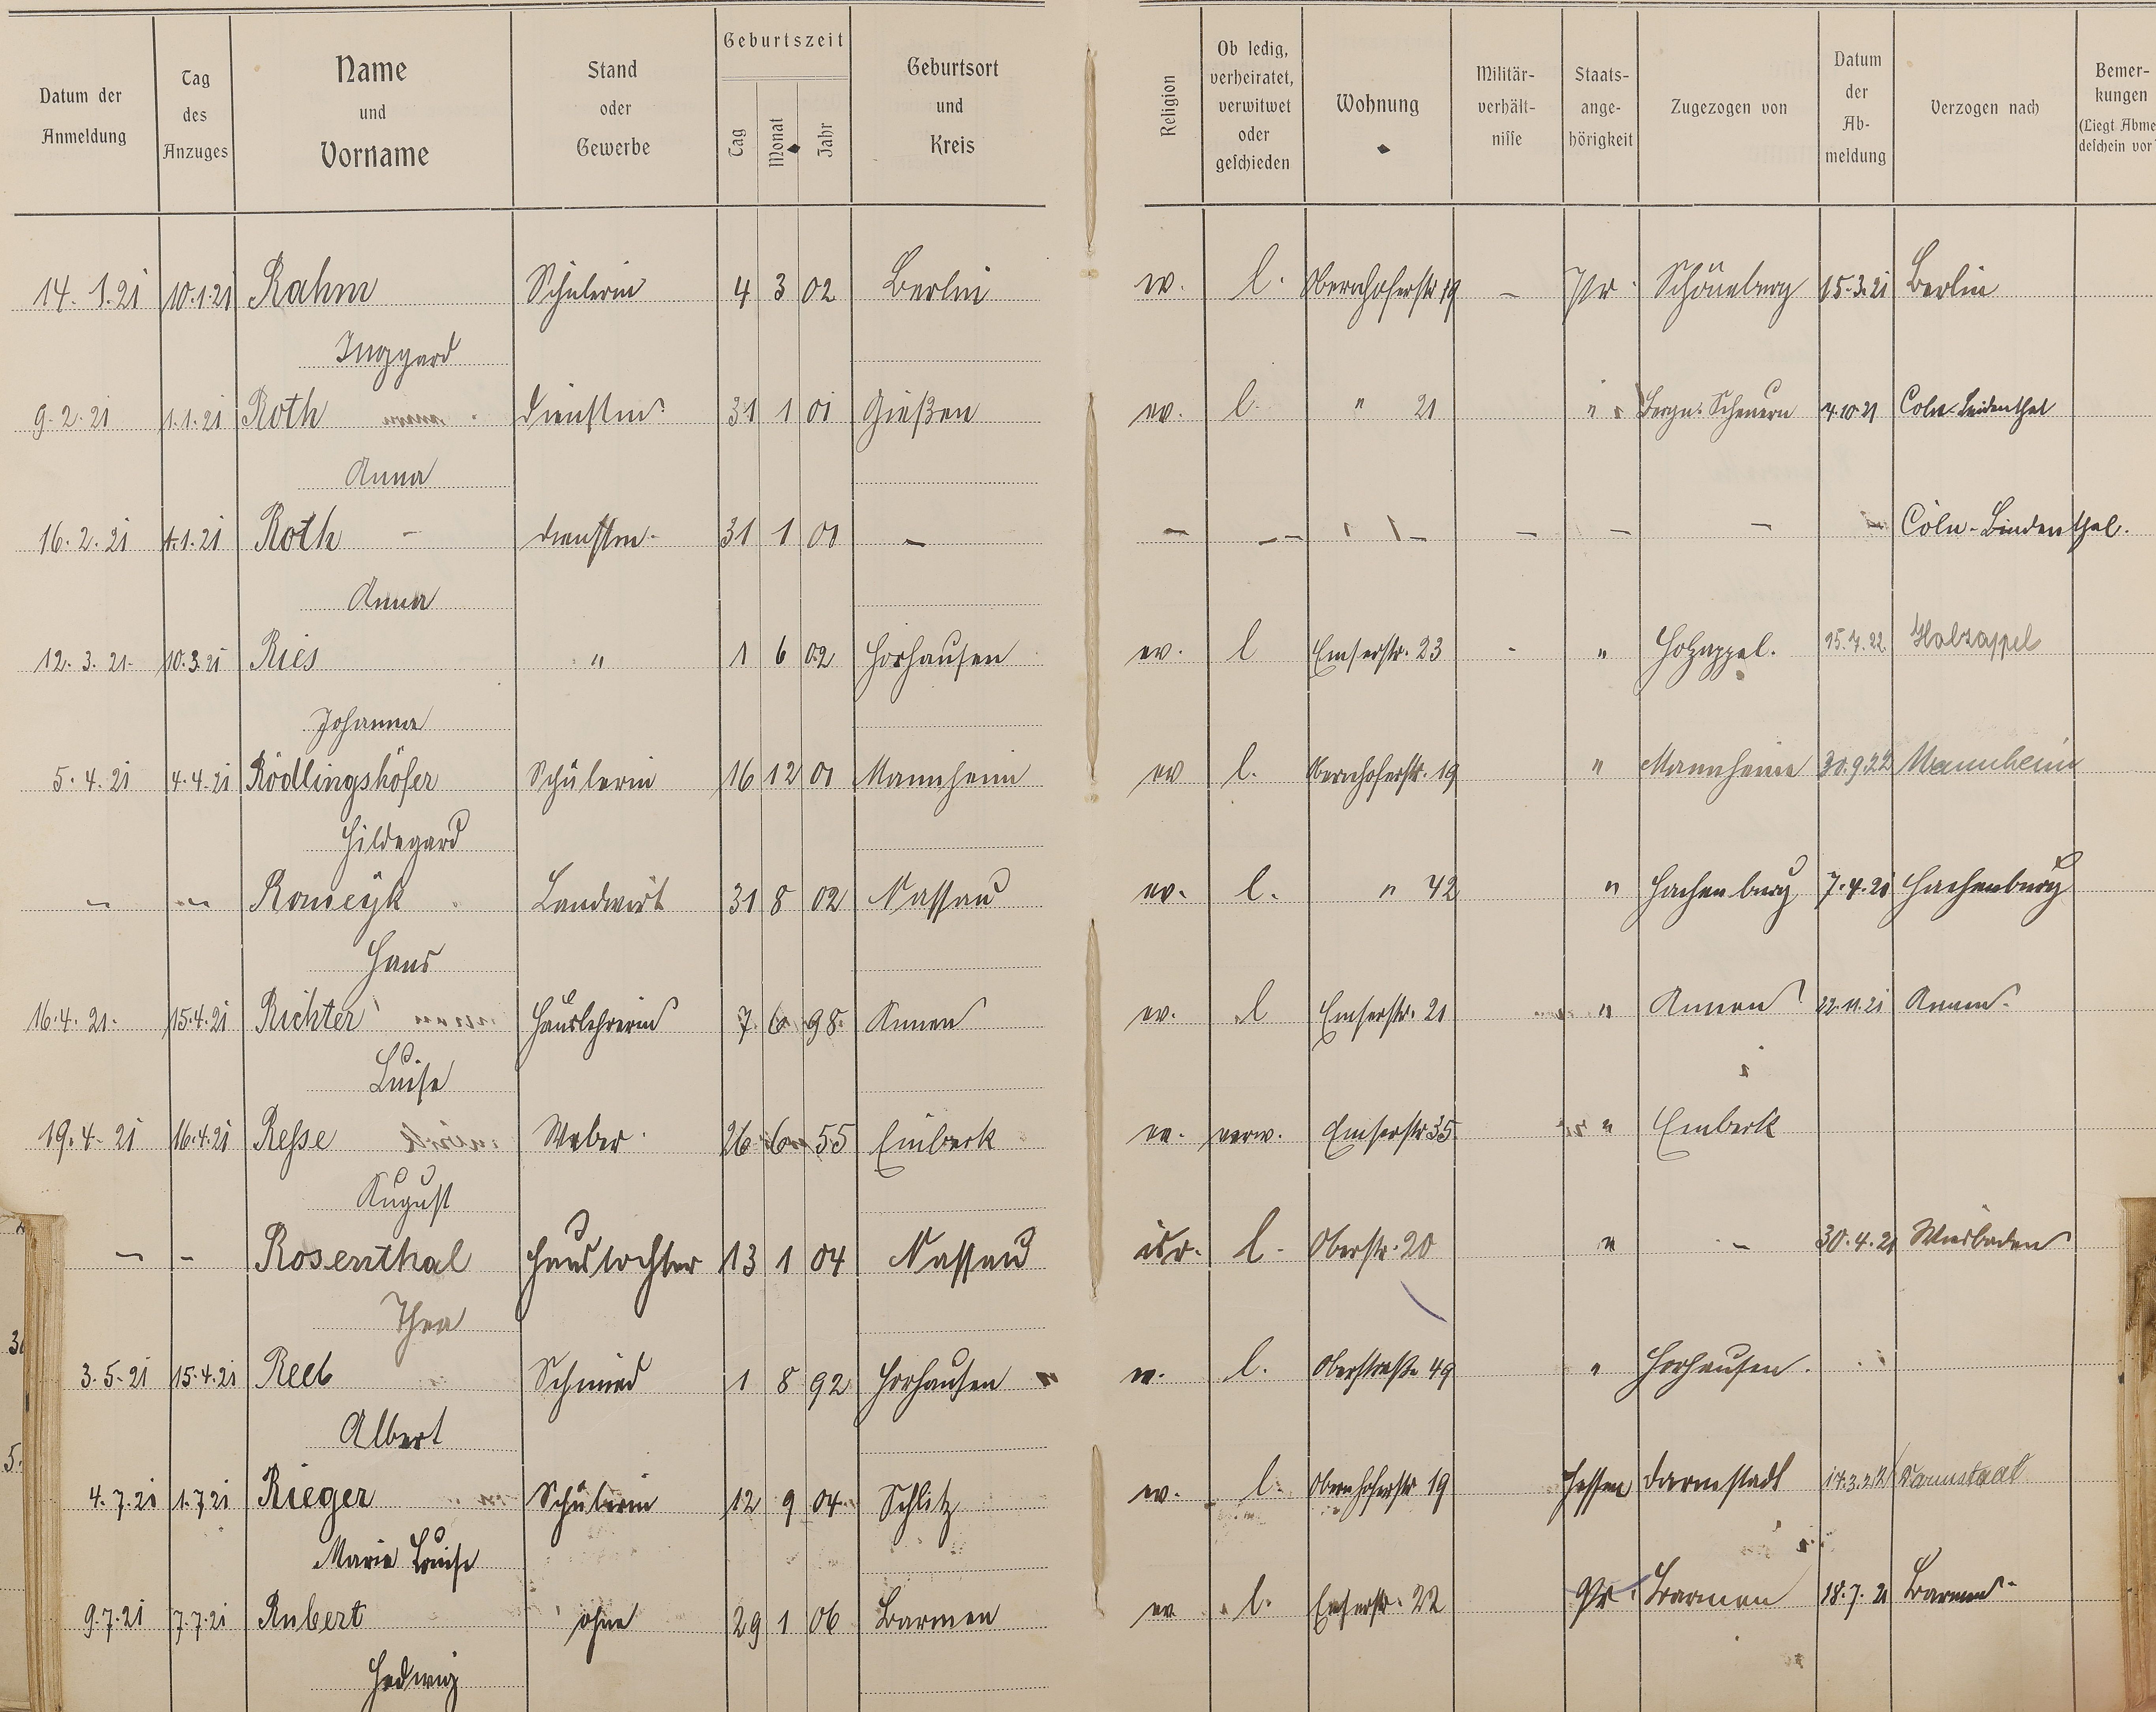 Datum der Anmeldung | Tag des Anzuges | Name und Vorname | Stand oder Gewerbe | Geburtszeit Tag Monat Jahr | Geburtsort und Kreis | Religion | Ob ledig, verheiratet, verwitwet oder geschieden | Wohnung | Militär-verhältnisse | Staats-ange-hörigkeit | Zugezogen von | Datum der Ab-meldung | Verzogen nach | Bemer-kungen (Liegt Abme deschein vor
14. 1. 21 10.1.21 Rahm Schülerin 4 3 02 Berlin ev. l. Obernhoferstr 19 – Pr. Schöneberg 15.3.21 Berlin
Inggard
9. 2. 21 1.1.21 Roth Dienstm. 31 1 01 Gießen ev. l. " 21 " Bergn. Scheuern 4.10.21 Coln-Lindenthal
Anna
16. 2. 21 1.1.21 Roth – Dienstm. 31 1 01 – – – – – – – Cöln-Lindenthal.
Anna
12. 3. 21. 10.3.21 Ries " 1 6 02 Horhausen ev. l Emserstr. 23 - " Holzappel. 15.7.22 Holzappel
Johanna
5. 4. 21 4.4.21 Rödlingshöfer Schülerin 16 12 01 Mannheim ev l. Obernhoferstr. 19 " Mannheim 30.9.22 Mannheim
Hildegard
– – Romeyk Landwirt 31 8 02 Nassau ev. l. " 42 " Hachenburg 7.4.21 Hachenburg
Hans
16. 4. 21. 15.4.21 Richter Hauslehrerin 7 6 98 Annen ev. l Emserstr. 21 " Annen 22.11.21 Annen.
Luise
19. 4. 21 16.4.21 Resse Weber 26 6 55 Einbeck ev. verw. Emserstr 35 " Einbeck
August
– – Rosenthal Haustochter 13 1 04 Nassau isr. l. Oberstr. 20 " – 30.4.21 Wiesbaden
Thea
3. 5. 21 15.4.21 Reeb Schmied 1 8 92 Horhausen ev. l. Oberstraße 49 " Horhausen.
Albert
4. 7. 21 1.7.21 Rieger Schülerin 12 9 04 Schlitz ev. l. Obernhoferstr 19 Hessen Darmstadt Darmstadt
Marie Louise
9.7.21 7.7.21 Rubert ohne 29 1 06 Barmen ev l. Emserstr. 22 Pr. Barmen 18.7.21 Barmen.
Hedwig